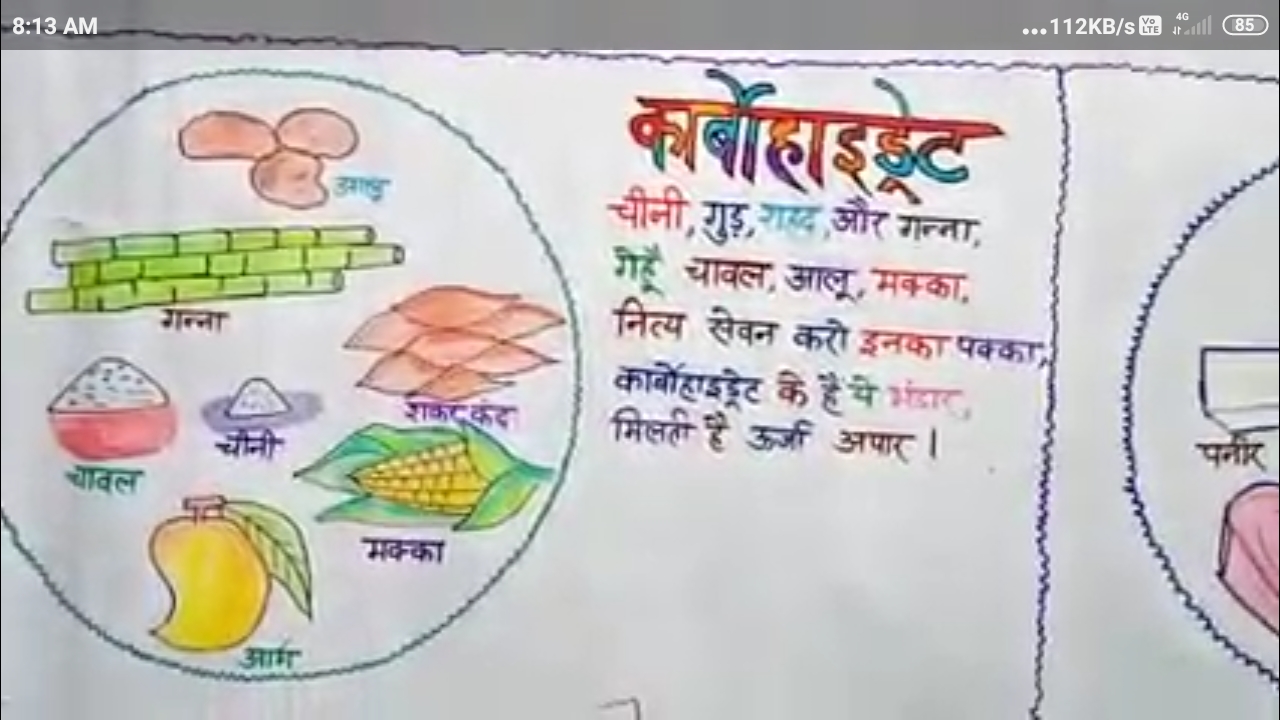 8:13 AM
...112KB/s Vo LTE 4G 85
आलू
गन्ना
शकरकंद
चावल
चीनी
मक्का
आम
कार्बोहाइड्रेट
चीनी, गुड़, शहद, और गन्ना,
गेहूँ चावल, आलू, मक्का,
नित्य सेवन करो इनका पक्का,
कार्बोहाइड्रेट के है ये भंडार,
मिलती है ऊर्जा अपार ।
पनीर